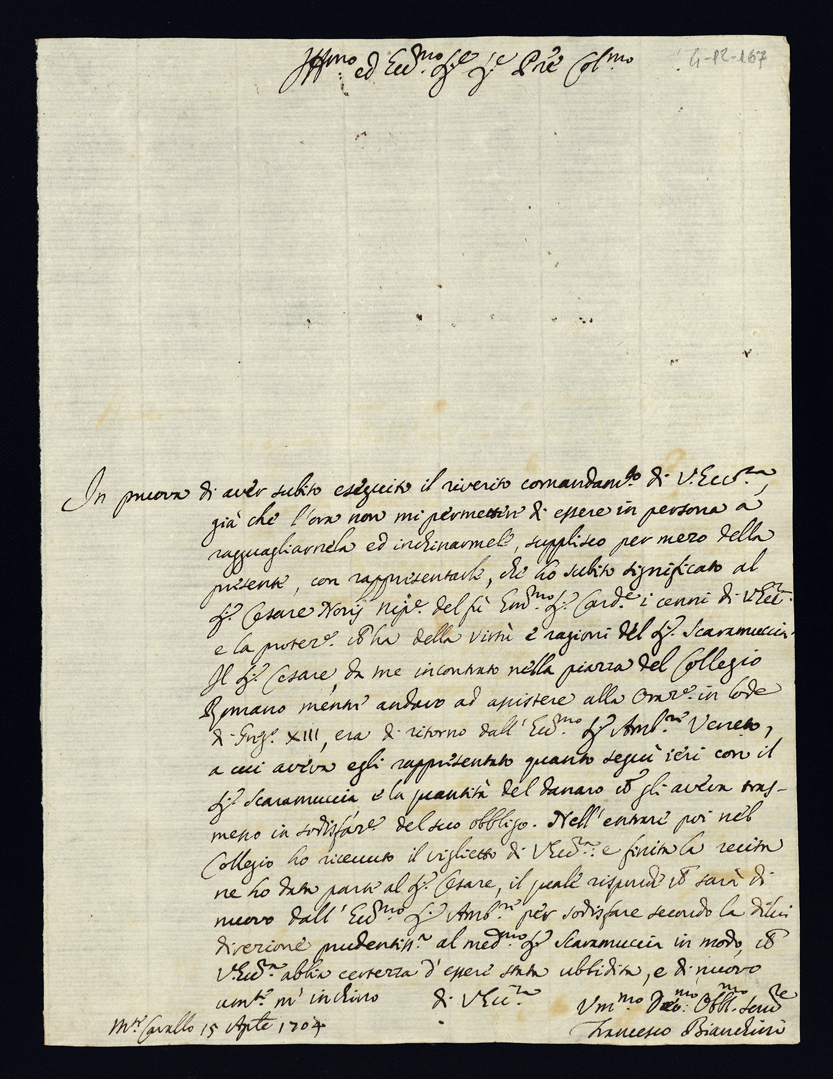 Illmo ed Eccmo Sr Sr Pre Colmo
4-12-167
In pruova di aver subito eseguito il riverito comandamto di V. Eccza,
già che l'ora non mi permette di essere in persona a
ragguagliarnela ed inchinarmele, supplisco per mezo della
presente, con rappresentarle, che ho subito significato al
Sr Cesare Noris Nipe del fù Emmo Sr Carde i cenni di V. Ecc.
e la protezne ch ha della virtù e ragioni del Sr Scaramuccia.
Il Sr Cesare da me incontrato nella piazza del Collegio
Romano mentre andavo ad assistere alla Orazne in lode
di Greg. XIII, era di ritorno dall' Eccmo Sr Ambre Veneto,
a cui aveva egli rappresentato quanto seguì ieri con il
Sr Scaramuccia e la quantità del danaro ch gli aveva tras-
messo in sodisfazne del suo obbligo. Nell' entrare poi nel
Collegio ho ricevuto il viglietto di V. Ecca e finita la recita
ne ho data parte al Sr Cesare, il quale risponde ch sarà di
nuovo dall' Eccmo Sr Ambre per sodisfare secondo la di lui
direzione prudentissa al medmo Sr Scaramuccia in modo, ch
V. Ecca abbia certezza d' essere stata ubbidita, e di nuovo
umte m' inchino di V. Ecca
Ummo Devmo Obblmo Servre
Mte Cavallo 15 Aple 1704
Francesco Bianchini